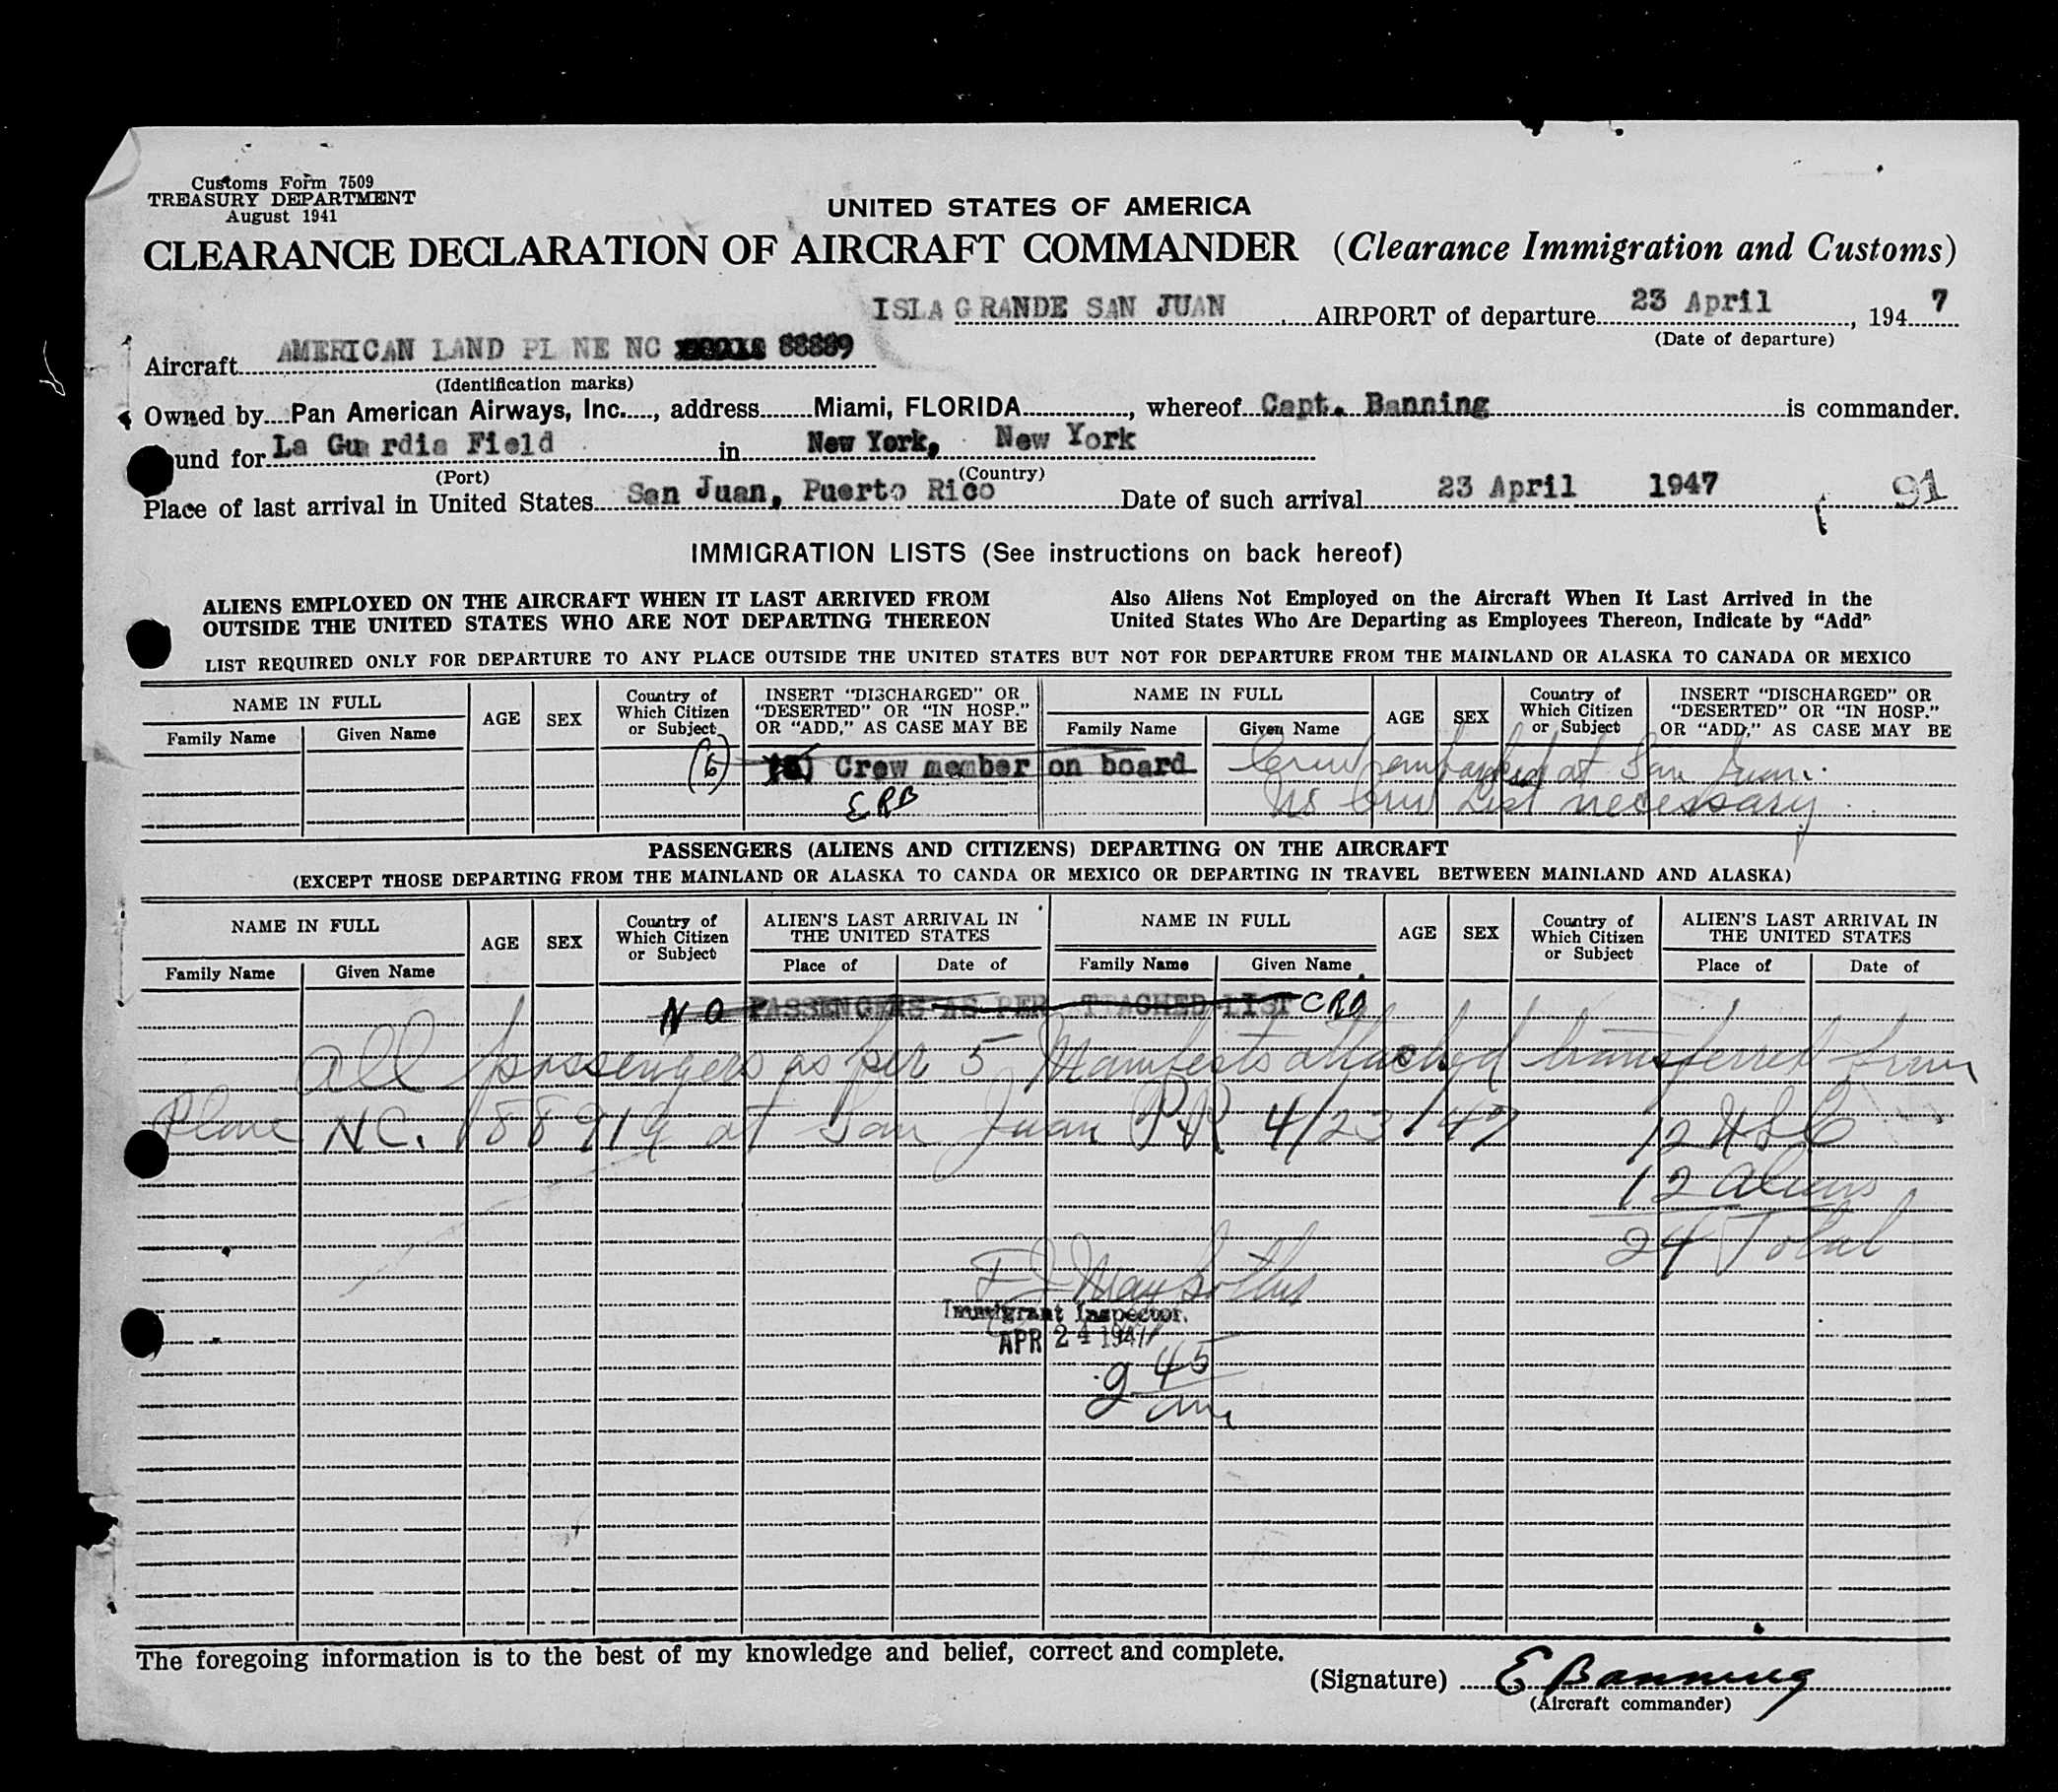 Customs Form 7509
TREASURY DEPARTMENT
August 1941
UNITED STATES OF AMERICA
CLEARANCE DECLARATION OF AIRCRAFT COMMANDER (Clearance Immigration and Customs)
ISLA GRANDE SAN JUAN AIRPORT of departure 23 April, 1947
(Date of departure)
Aircraft AMERICAN LAND PL NE NC 88889
(Identification marks)
Owned by Pan American Airways, Inc., address Miami, FLORIDA, whereof Capt. Banning is commander.
und for La Gua rdia Field in New York, New York
(Port) (Country)
Place of last arrival in United States San Juan, Puerto Rico Date of such arrival 23 April 1947 91
IMMIGRATION LISTS (See instructions on back hereof)
ALIENS EMPLOYED ON THE AIRCRAFT WHEN IT LAST ARRIVED FROM OUTSIDE THE UNITED STATES WHO ARE NOT DEPARTING THEREON
Also Aliens Not Employed on the Aircraft When It Last Arrived in the United States Who Are Departing as Employees Thereon, Indicate by "Add"
LIST REQUIRED ONLY FOR DEPARTURE TO ANY PLACE OUTSIDE THE UNITED STATES BUT NOT FOR DEPARTURE FROM THE MAINLAND OR ALASKA TO CANADA OR MEXICO
NAME IN FULL AGE SEX Country of Which Citizen or Subject INSERT "DISCHARGED" OR "DESERTED" OR "IN HOSP." OR "ADD," AS CASE MAY BE NAME IN FULL AGE SEX Country of Which Citizen or Subject INSERT "DISCHARGED" OR "DESERTED" OR "IN HOSP." OR "ADD," AS CASE MAY BE
Family Name Given Name Family Name Given Name
(6) Crew member on board Crew at San Juan.
ERB No Crew List necessary
PASSENGERS (ALIENS AND CITIZENS) DEPARTING ON THE AIRCRAFT
(EXCEPT THOSE DEPARTING FROM THE MAINLAND OR ALASKA TO CANDA OR MEXICO OR DEPARTING IN TRAVEL BETWEEN MAINLAND AND ALASKA)
NAME IN FULL AGE SEX Country of Which Citizen or Subject ALIEN'S LAST ARRIVAL IN THE UNITED STATES NAME IN FULL AGE SEX Country of Which Citizen or Subject ALIEN'S LAST ARRIVAL IN THE UNITED STATES
Family Name Given Name Place of Date of Family Name Given Name Place of Date of
NO PASSENGERS AS PER TTACHED LIST
All passengers as per 5 Manifests attached transferred from
Plane NC. 88919 at San Juan PR 4/23/47 12 USC
12 Aliens
24 Total
Immigrant Inspector.
APR 24 1947
9 45
am
The foregoing information is to the best of my knowledge and belief, correct and complete.
(Signature) E Banning
(Aircraft commander)